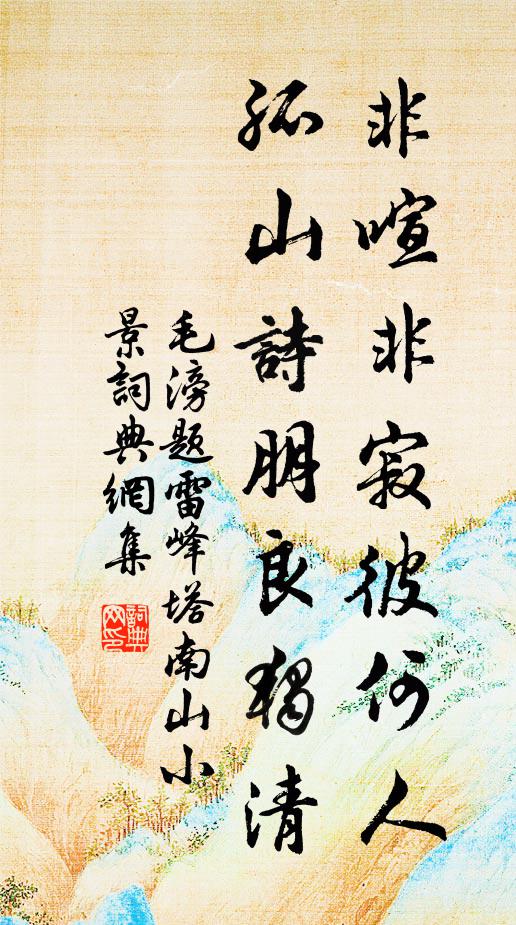 非喧非寂彼何人
孤山詩朋良獨清
毛滂題雷峰塔南山小
景詞典網集
詞典